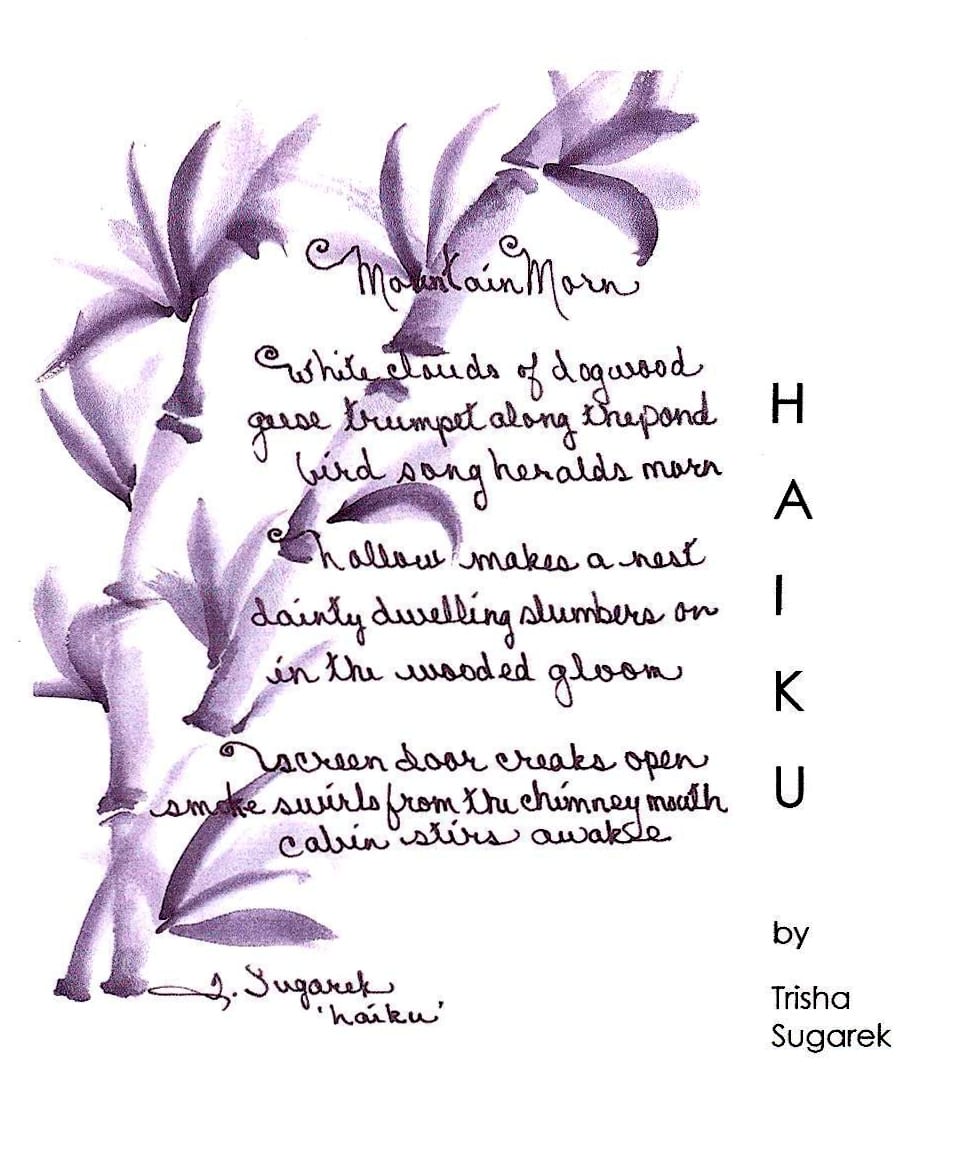 Mountain Morn
White clouds of dogwood
geese trumpet along the pond
bird song heralds morn
hollow makes a nest
dainty dwelling slumbers on
in the wooded gloom
screen door creaks open
smoke swirls from the chimney mouth
cabin stirs awake
T. Sugarek
'haiku'
H
A
I
K
U
by
Trisha
Sugarek